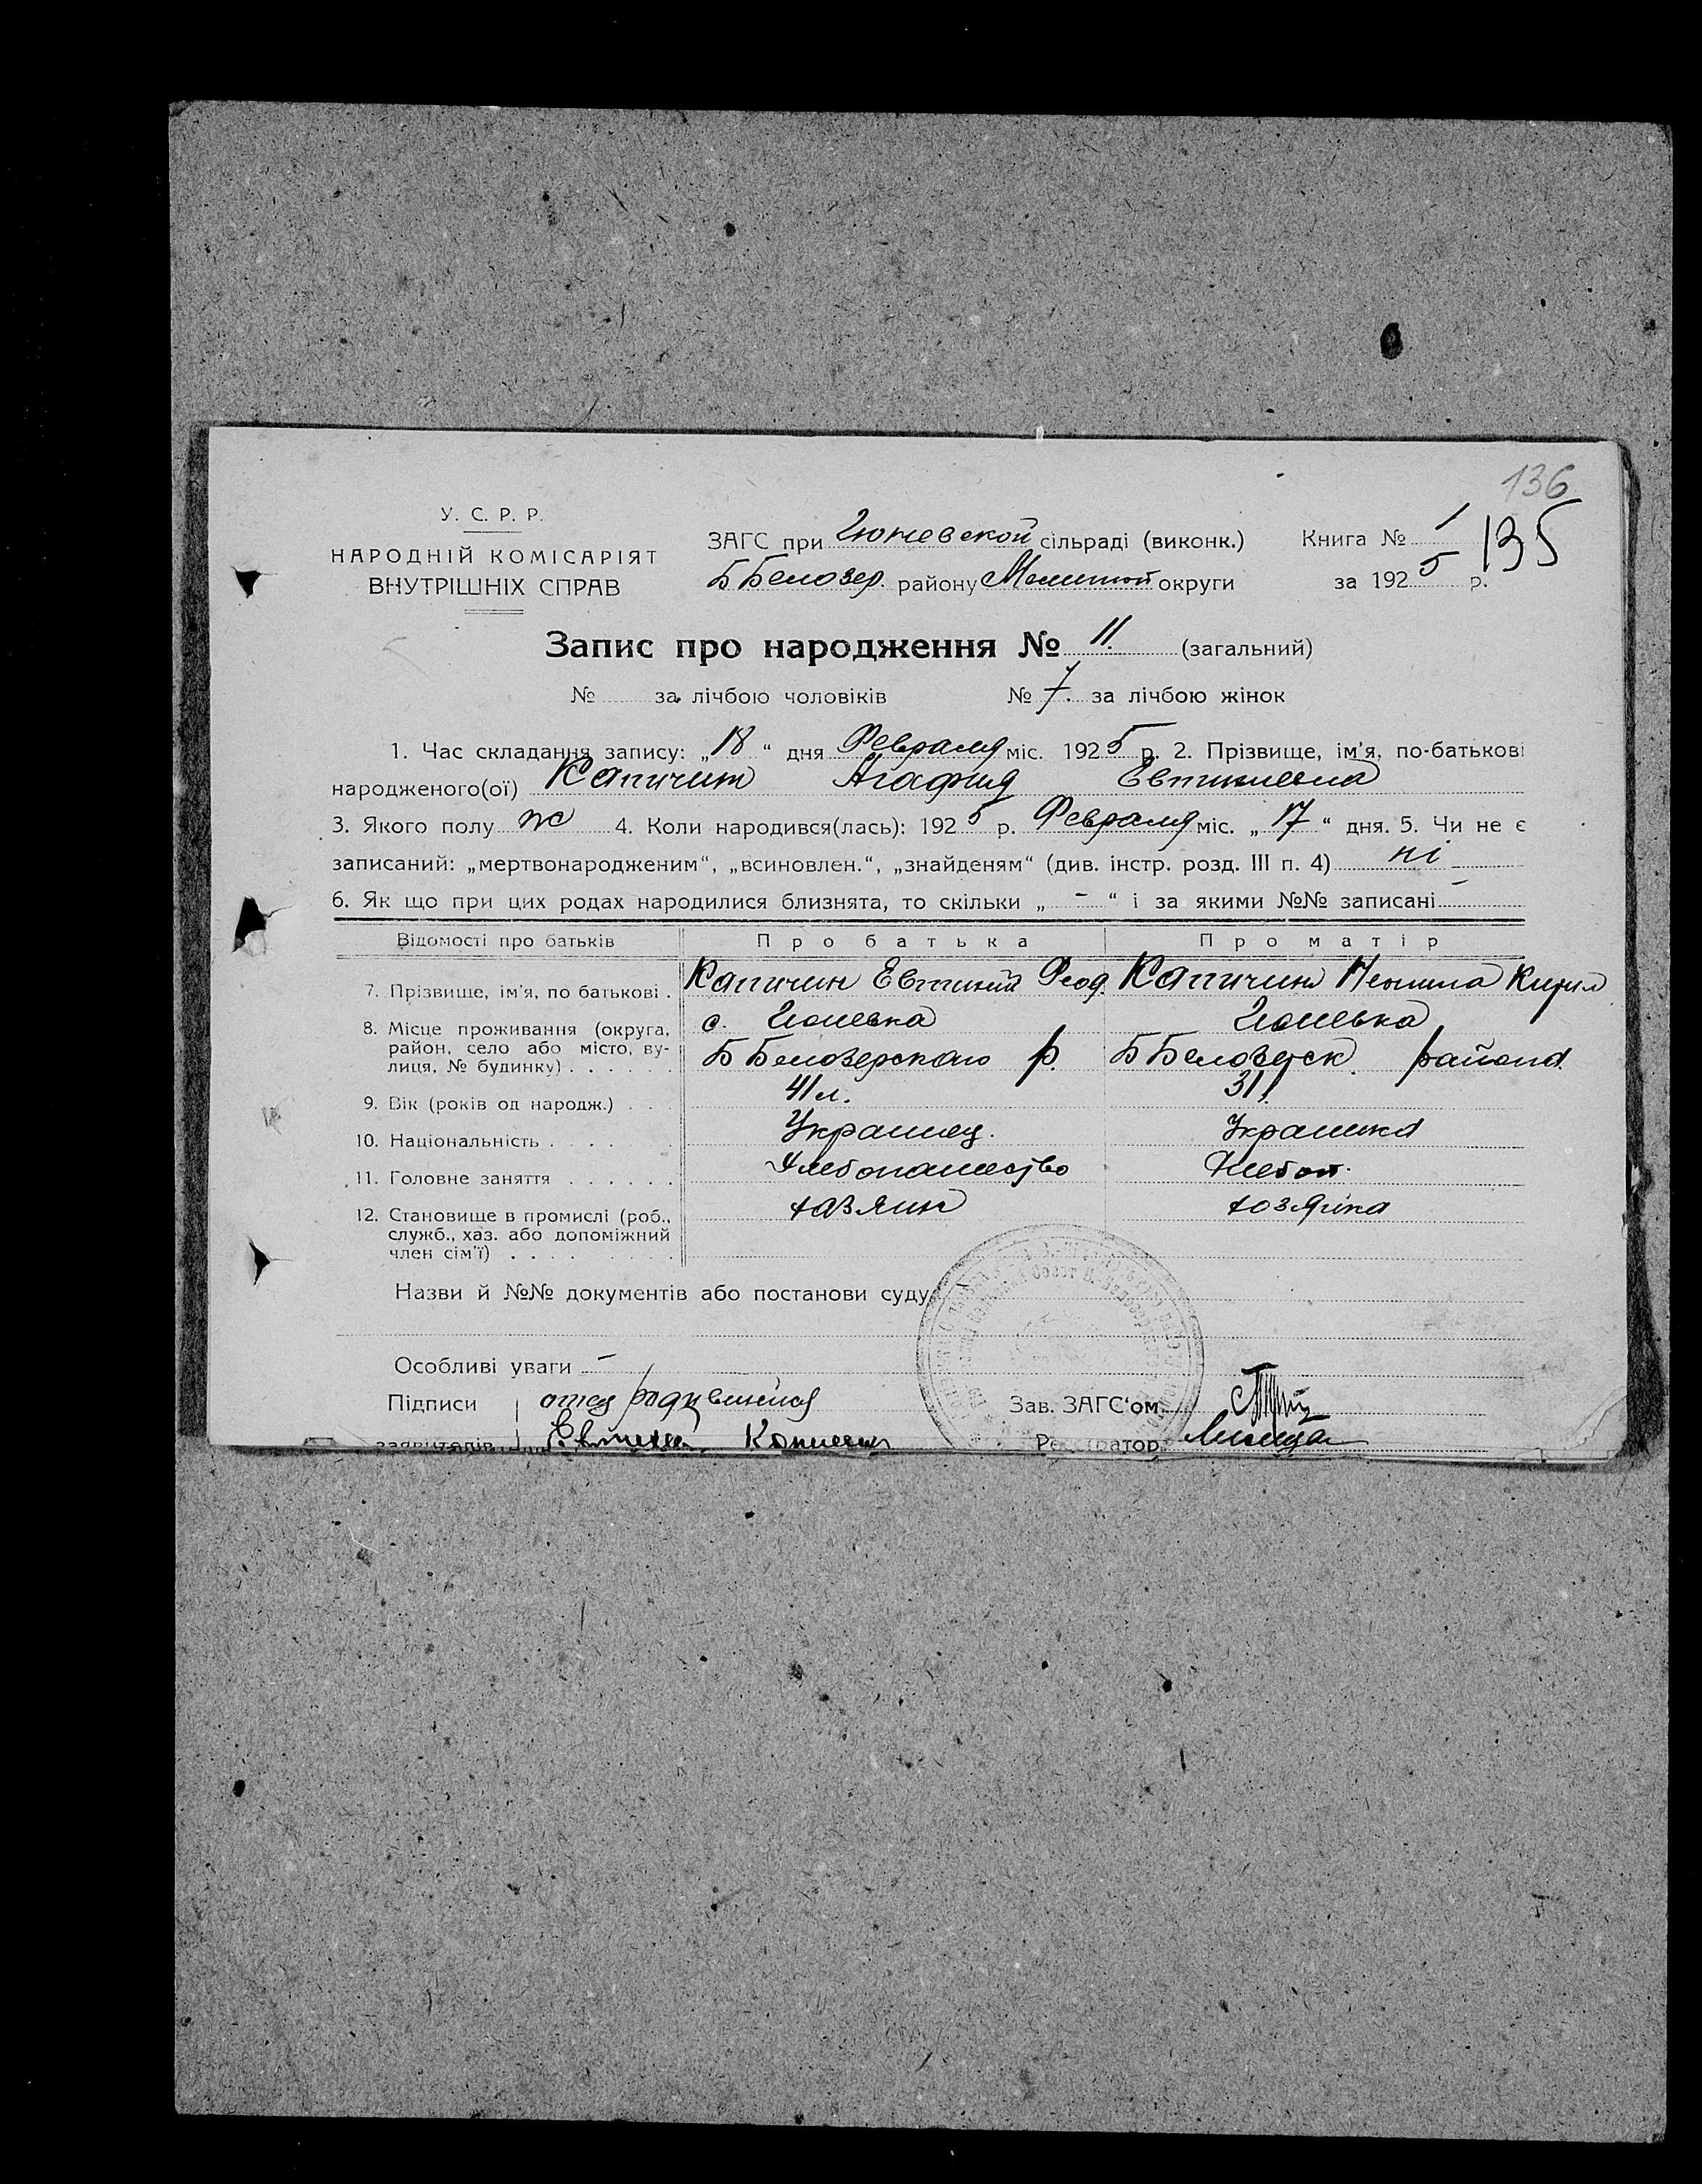 136
У. С. Р. Р.
НАРОДНІЙ КОМІСАРІЯТ
ВНУТРІШНІХ СПРАВ
ЗАГС при Гюневской сільраді (виконк.)
Б Белозер. району округи
Книга № 1
135
за 1925 р.
Запис про народження № 11. (загальний)
№ за лічбою чоловіків № 7. за лічбою жінок
1. Час складання запису: „18“ дня Февраля міс. 1925 р. 2. Прізвище, ім’я, по-батькові
народженого(ої) Капичин Агафия
3. Якого полу ж 4. Коли народився(лась): 1925 р. Февраля міс. „17“ дня. 5. Чи не є
записаний: „мертвонародженим“, „всиновлен.“, „знайденям“ (див. інстр. розд. III п. 4) ні
6. Як що при цих родах народилися близнята, то скільки „ - “ і за якими №№ записані -
Відомості про батьків Про батька Про матір
7. Прізвище, ім’я, по батькові . Капичин Евтихий Феод. Капичин Неонила Кирил
8. Місце проживання (округа, район, село або місто, вулиця, № будинку) . . . . . .
с. Гюневка Гюневка
Б Белозерского р. Б Белозерск. района
9. Вік (років од народж.) . . . 41 л. 31 л.
10. Національність . . . . Украинец. Украинка
11. Головне заняття . . . . . . Хлебопашество Хлебоп.
12. Становище в промислі (роб., служб., хаз. або допоміжний член сім’ї) . . . . . . . хазяин хозяйка
Назви й №№ документів або постанови суду
Особливі уваги -
Підписи отец родившейся
заявителів Евтихий
Зав. ЗАГС‘ом
Реєстратор